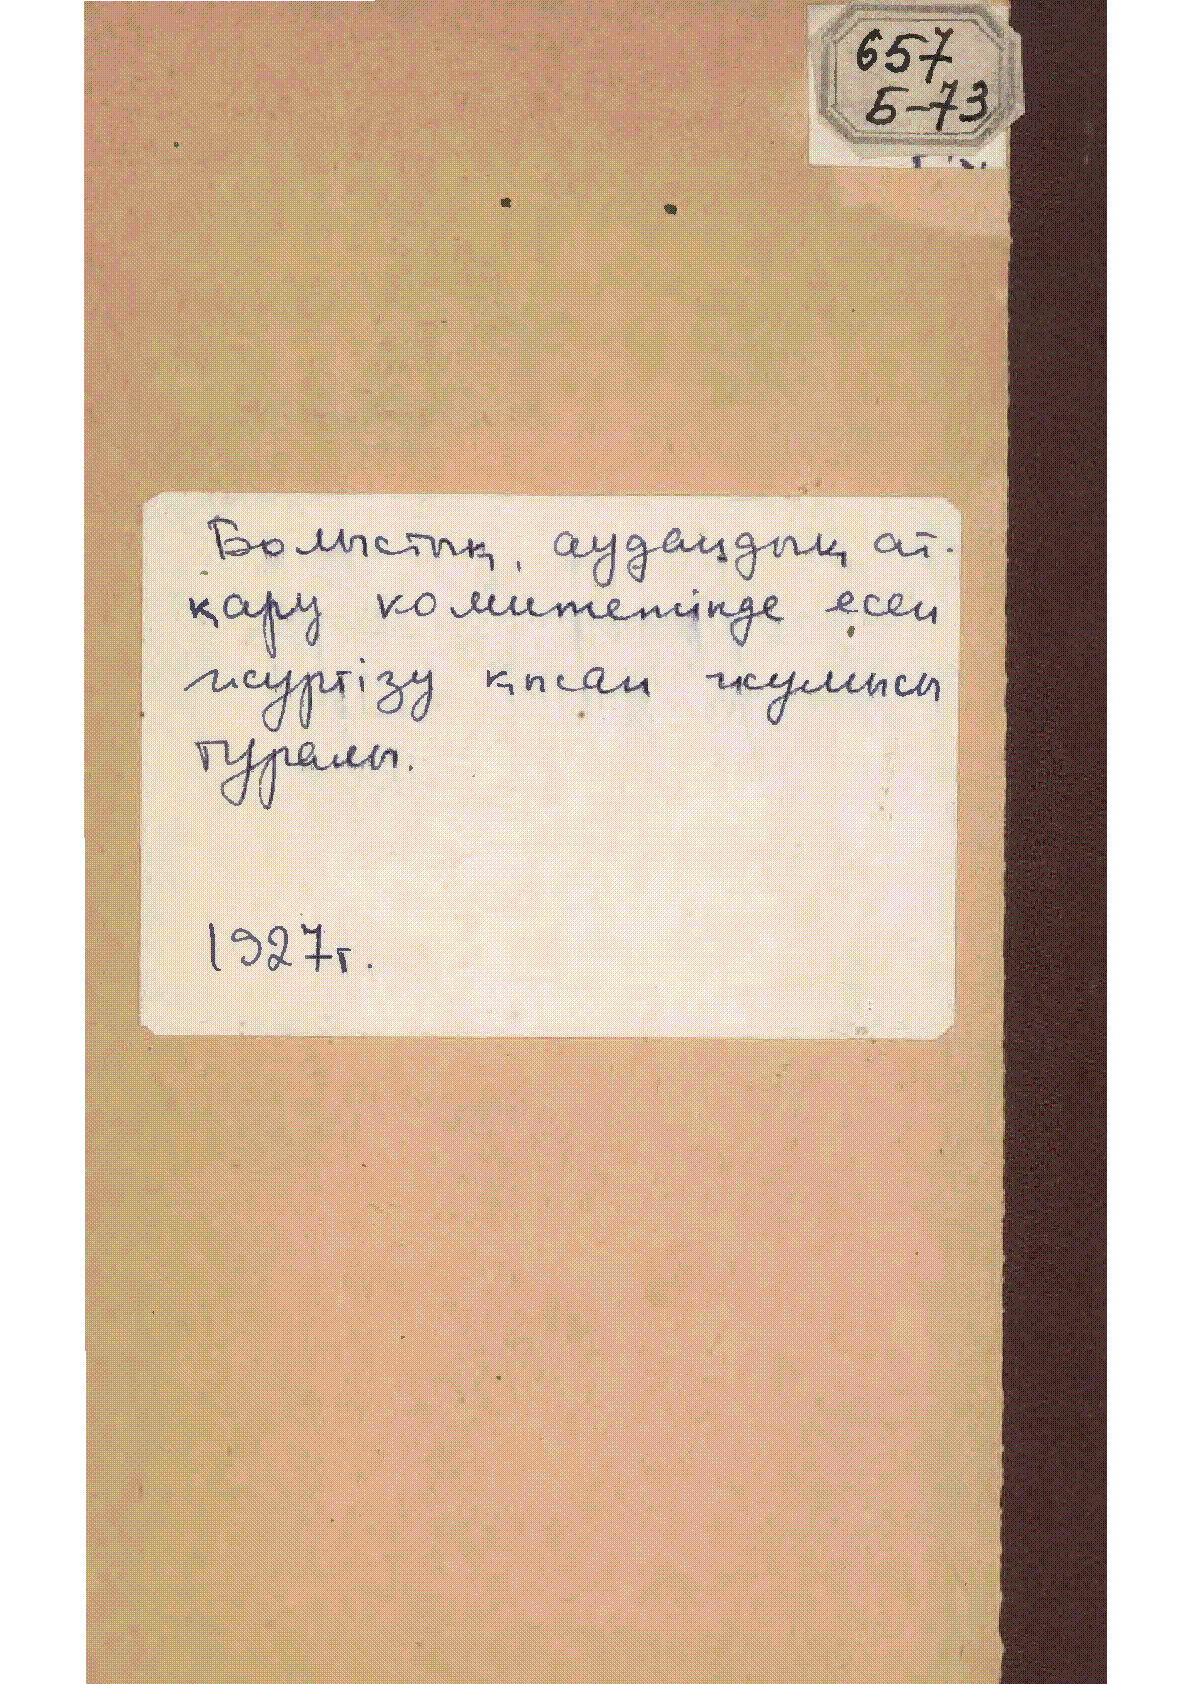 657
Б-73
Болыстық, аудандық ат-
қару комитетінде есеп
жүргізу қысаң жұмысы
туралы.
1927г.